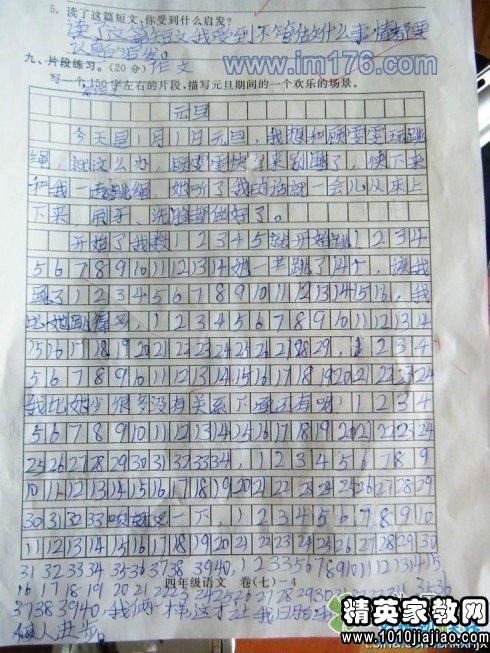 5. 读了这篇短文,你受到什么启发?
读了这篇短文我受到不管做什么事情都要
认真的启发。
www.im176.com
九、片段练习。(20分)作文
写一个150字左右的片段,描写元旦期间的一个欢乐的场景。
元旦
今天是1月1日元旦,我想和顾雯雯玩跳
绳,就这么办,顾雯雯快来别睡了,快下来
和我一起跳绳,她听了我的话就一会儿从床上
下来,刷牙、洗脸都做好了。
开始了我数12345就开始跳1234
567891011121314她一共跳了14个,该我
跳了12345678910111213141516,我
比她跳得多,1234567891011121314
251617181920212223242526272829,1234
56789101112131415161718192021222324
我比她少很多没有关系下面还有呀!1234
56789101112131415161718192021222324
25262728293031323334,123456789
1011121314151617181920212223242526272829
30313233 一下,12345678910
1112131415161718192021222324252627282930
31323334353637383940,123356789101112131415
161718192021222324252627282930
37383940,我俩一样
四年级语文 卷(七)—4
人进步。
精英家教网
www.1010jiajiao.com